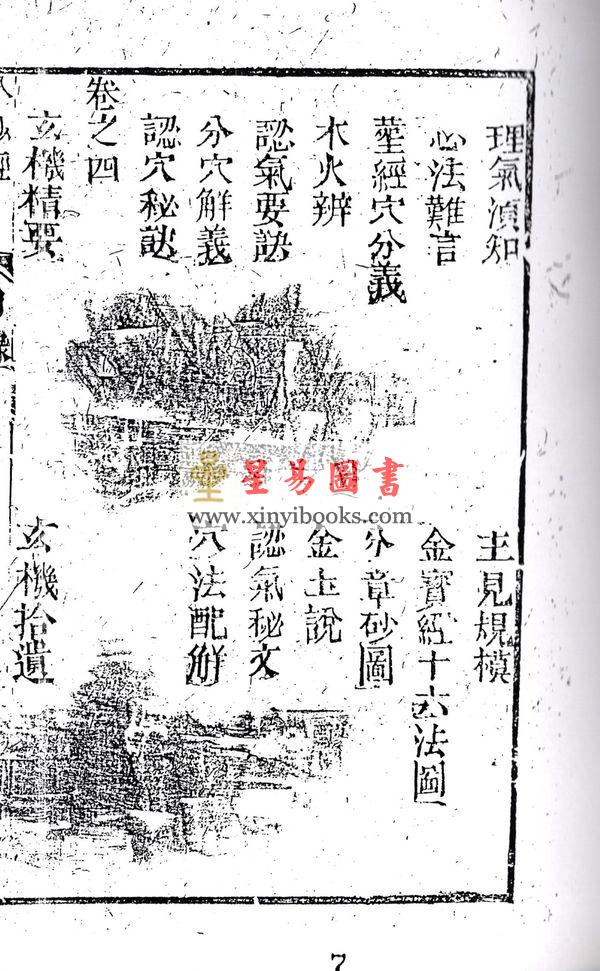 理氣湏知 主見規模
心法難言 金寳經十六法圖
塟經穴分義 分章砂圖
水火辨 金土說
認氣要訣 認氣秘文
分穴解義 穴法配觧
認穴秘訣
卷之四
玄機精要 玄機拾遺
星易圖書
www.xinyibooks.com
7